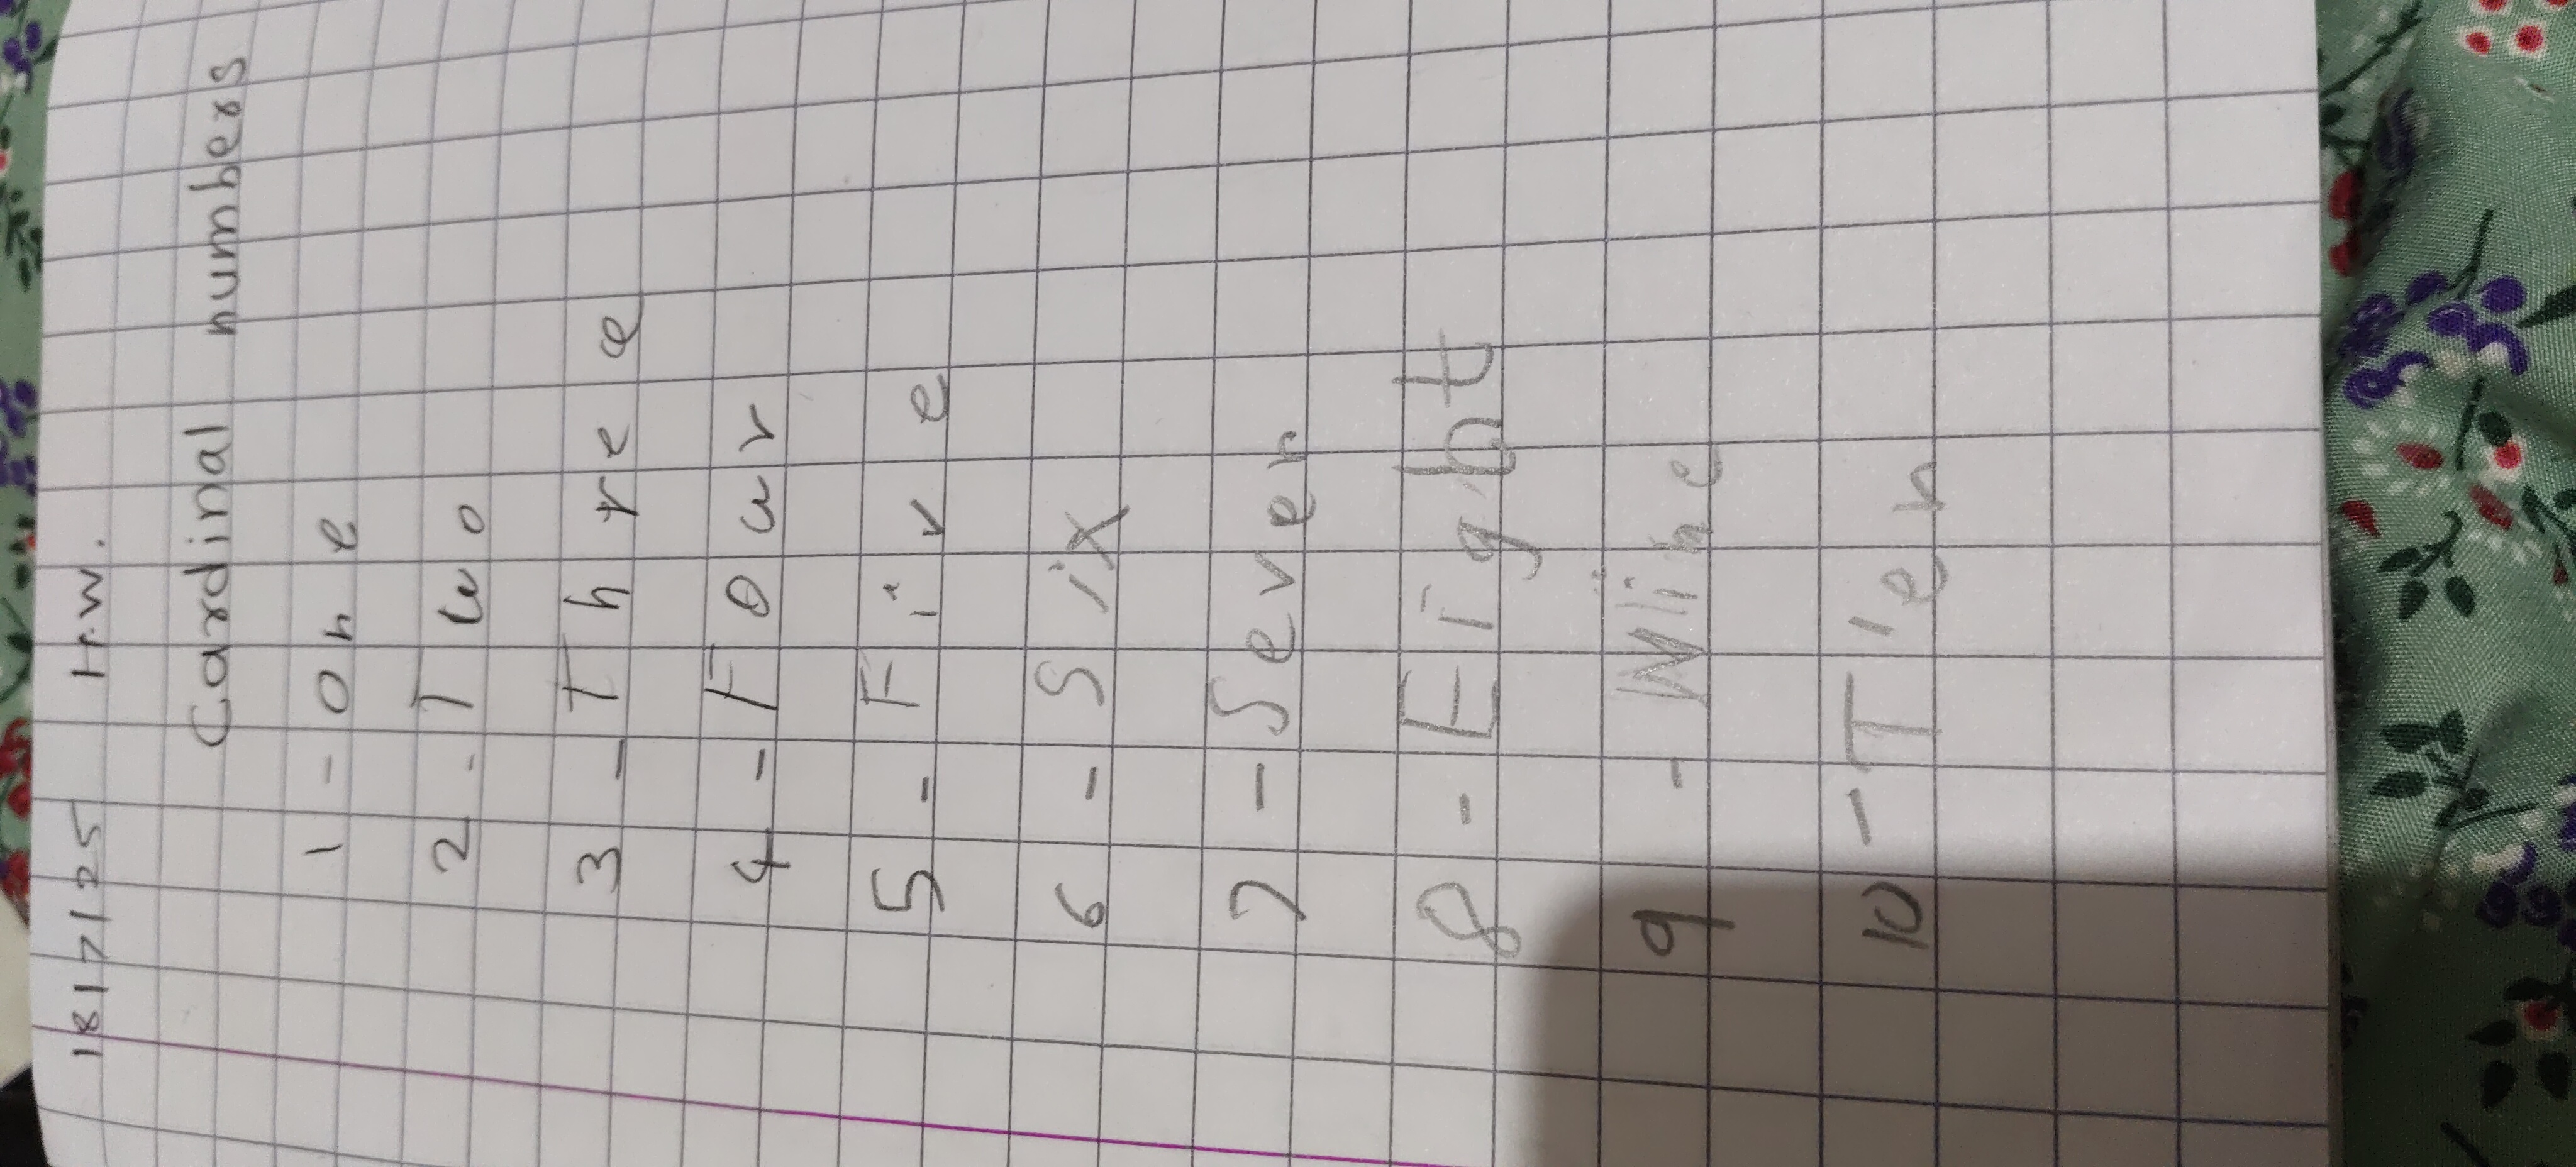 18/7/25 H.W.
Cardinal numbers
1 - One
2 - Two
3 - Three
4 - Four
5 - Five
6 - Six
7 - Seven
8 - Eight
9 - Nine
10 - Ten